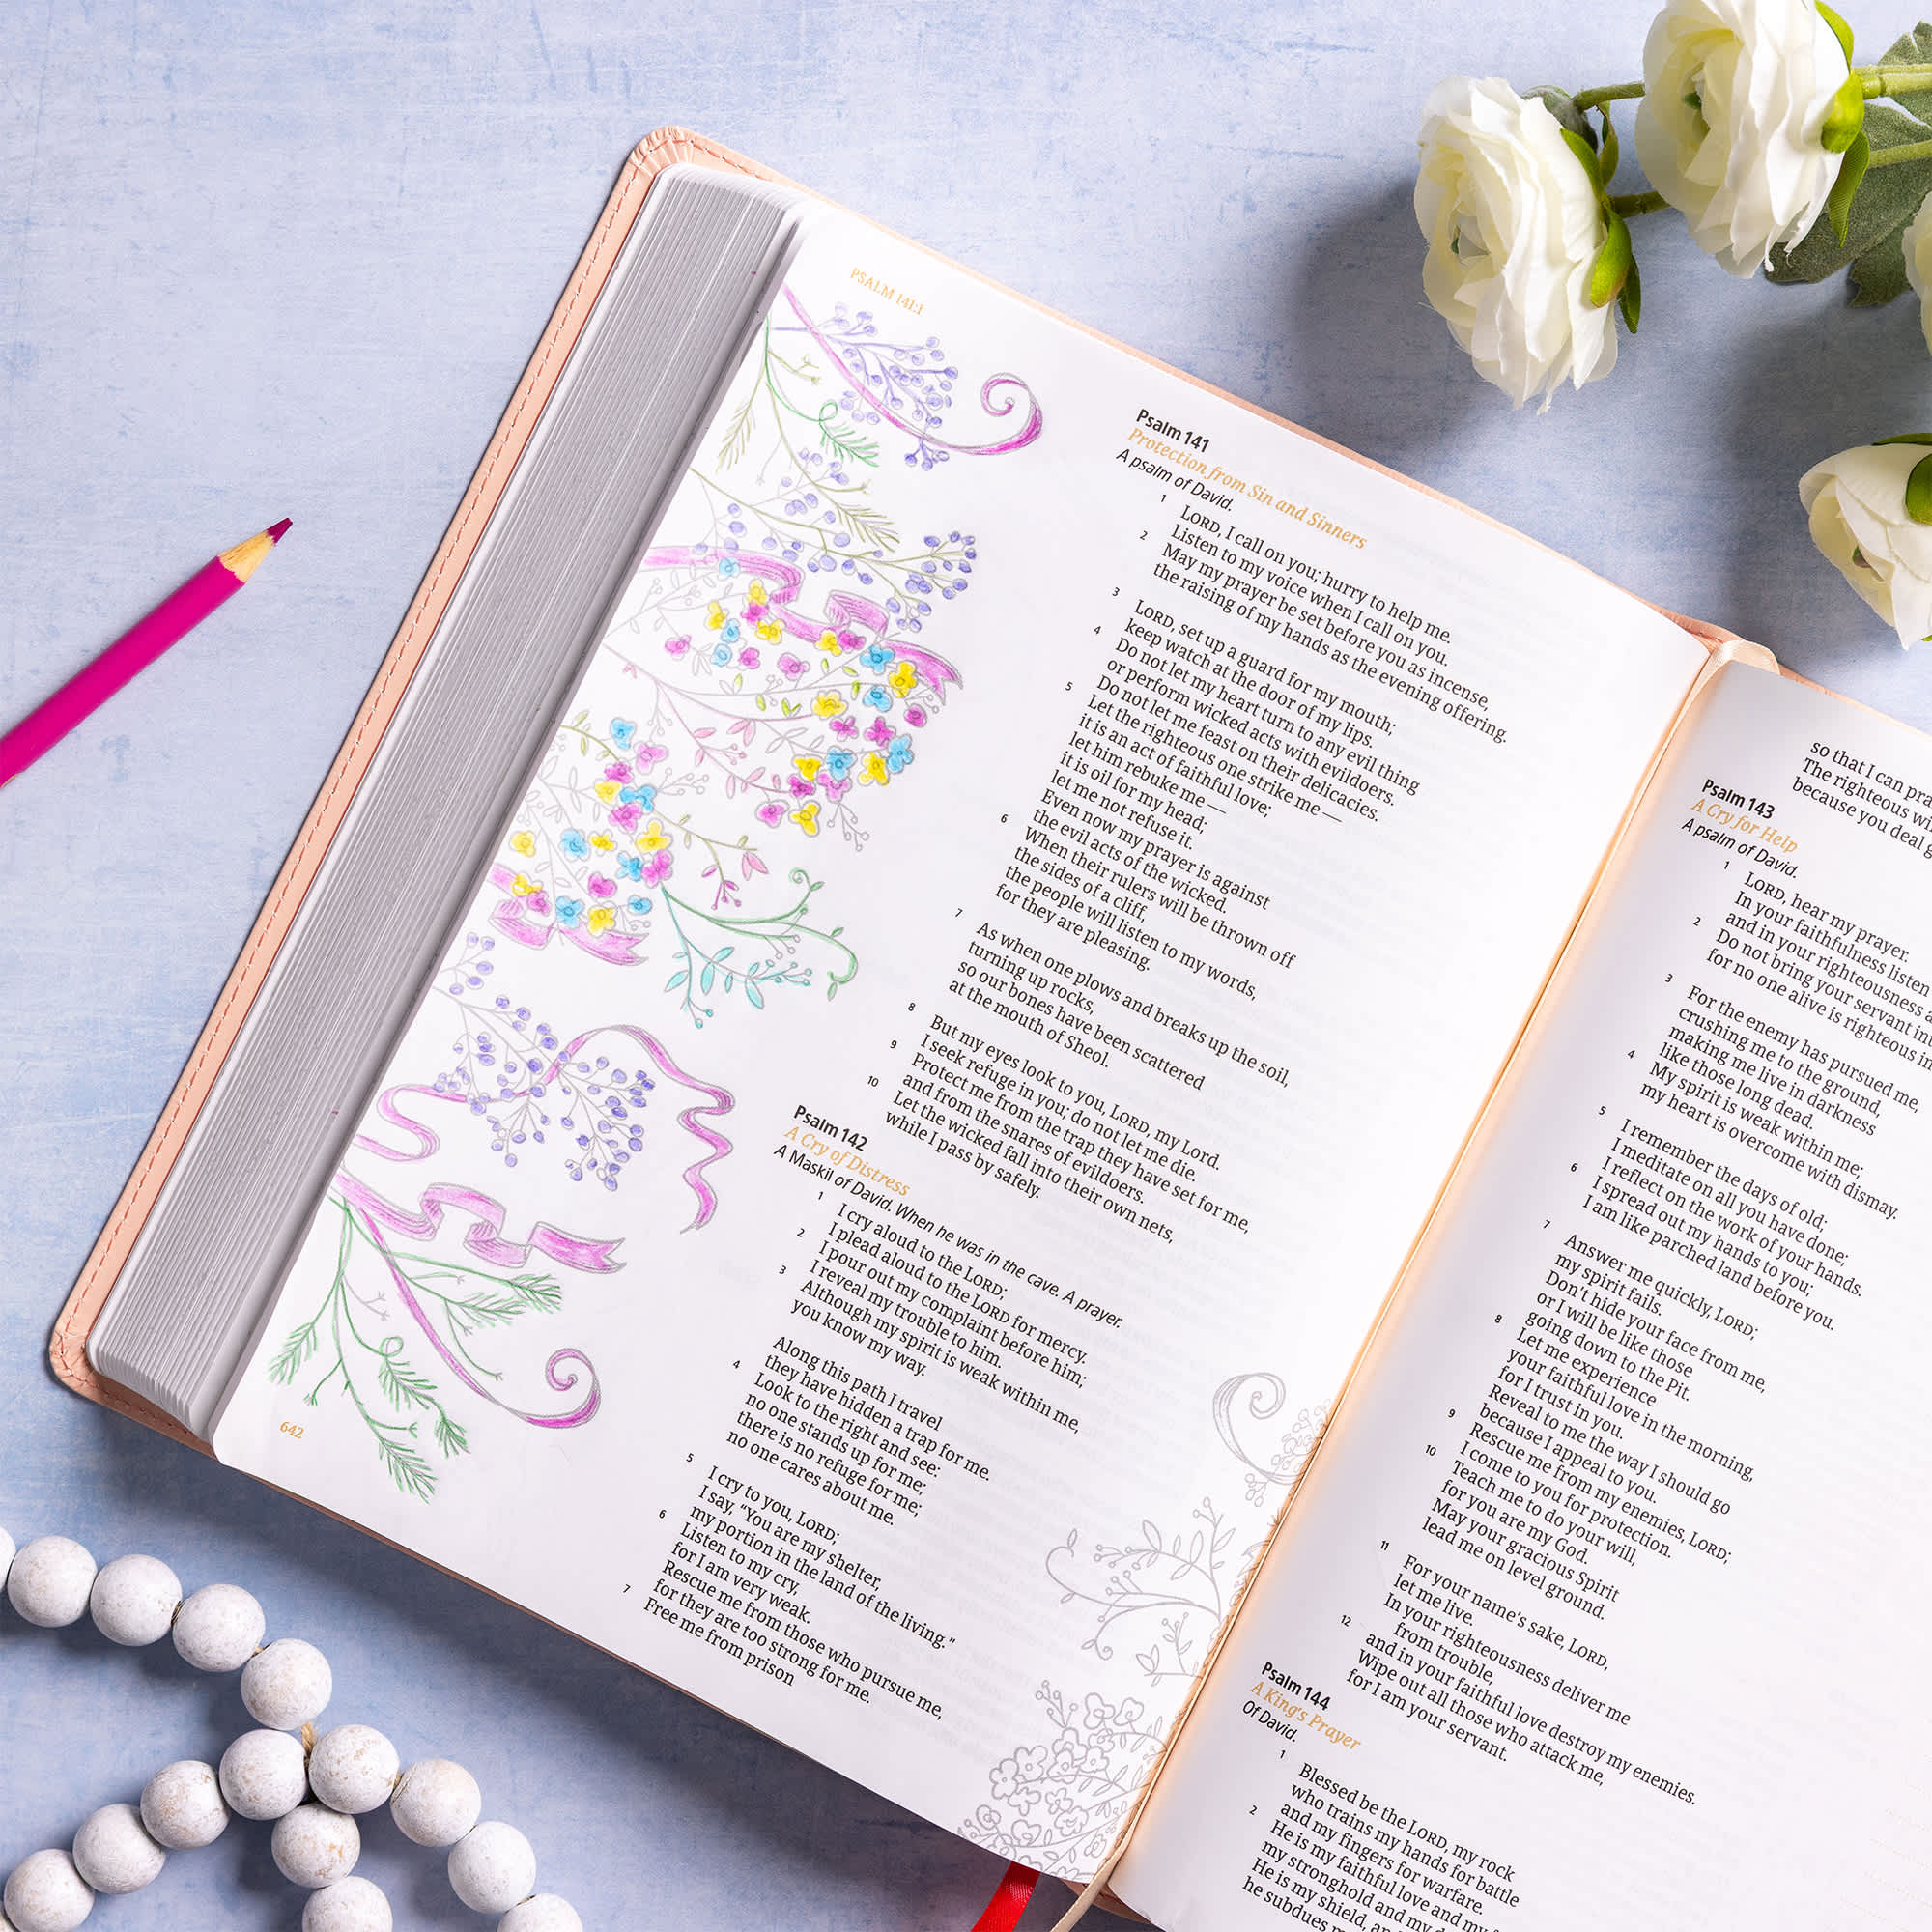 PSALM 141:1
Psalm 141
Protection from Sin and Sinners
A psalm of David.
1 LORD, I call on you; hurry to help me.
Listen to my voice when I call on you.
2 May my prayer be set before you as incense,
the raising of my hands as the evening offering.
3 LORD, set up a guard for my mouth;
keep watch at the door of my lips.
4 Do not let my heart turn to any evil thing
or perform wicked acts with evildoers.
Do not let me feast on their delicacies.
5 Let the righteous one strike me —
it is an act of faithful love;
let him rebuke me —
it is oil for my head;
let me not refuse it.
Even now my prayer is against
the evil acts of the wicked.
6 When their rulers will be thrown off
the sides of a cliff,
the people will listen to my words,
for they are pleasing.
7 As when one plows and breaks up the soil,
turning up rocks,
so our bones have been scattered
at the mouth of Sheol.
8 But my eyes look to you, LORD, my Lord.
I seek refuge in you; do not let me die.
9 Protect me from the trap they have set for me,
and from the snares of evildoers.
10 Let the wicked fall into their own nets,
while I pass by safely.
Psalm 142
A Cry of Distress
A Maskil of David. When he was in the cave. A prayer.
1 I cry aloud to the LORD;
I plead aloud to the LORD for mercy.
2 I pour out my complaint before him;
I reveal my trouble to him.
3 Although my spirit is weak within me,
you know my way.
Along this path I travel
they have hidden a trap for me.
4 Look to the right and see:
no one stands up for me;
there is no refuge for me;
no one cares about me.
5 I cry to you, LORD;
I say, “You are my shelter,
my portion in the land of the living.”
6 Listen to my cry,
for I am very weak.
Rescue me from those who pursue me,
for they are too strong for me.
7 Free me from prison
642
so that I can pra
The righteous wi
because you deal g
Psalm 143
A Cry for Help
A psalm of David.
1 LORD, hear my prayer.
In your faithfulness listen
and in your righteousness a
2 Do not bring your servant int
for no one alive is righteous in
3 For the enemy has pursued me,
crushing me to the ground,
making me live in darkness
like those long dead.
4 My spirit is weak within me;
my heart is overcome with dismay.
5 I remember the days of old;
I meditate on all you have done;
I reflect on the work of your hands.
6 I spread out my hands to you;
I am like parched land before you.
7 Answer me quickly, LORD;
my spirit fails.
Don’t hide your face from me,
or I will be like those
going down to the Pit.
8 Let me experience
your faithful love in the morning,
for I trust in you.
Reveal to me the way I should go
because I appeal to you.
9 Rescue me from my enemies, LORD;
I come to you for protection.
10 Teach me to do your will,
for you are my God.
May your gracious Spirit
lead me on level ground.
11 For your name’s sake, LORD,
let me live.
In your righteousness deliver me
from trouble,
12 and in your faithful love destroy my enemies.
Wipe out all those who attack me,
for I am your servant.
Psalm 144
A King’s Prayer
Of David.
1 Blessed be the LORD, my rock
who trains my hands for battle
and my fingers for warfare.
2 He is my faithful love and my
my stronghold and my d
He is my shield, an
he subdues m